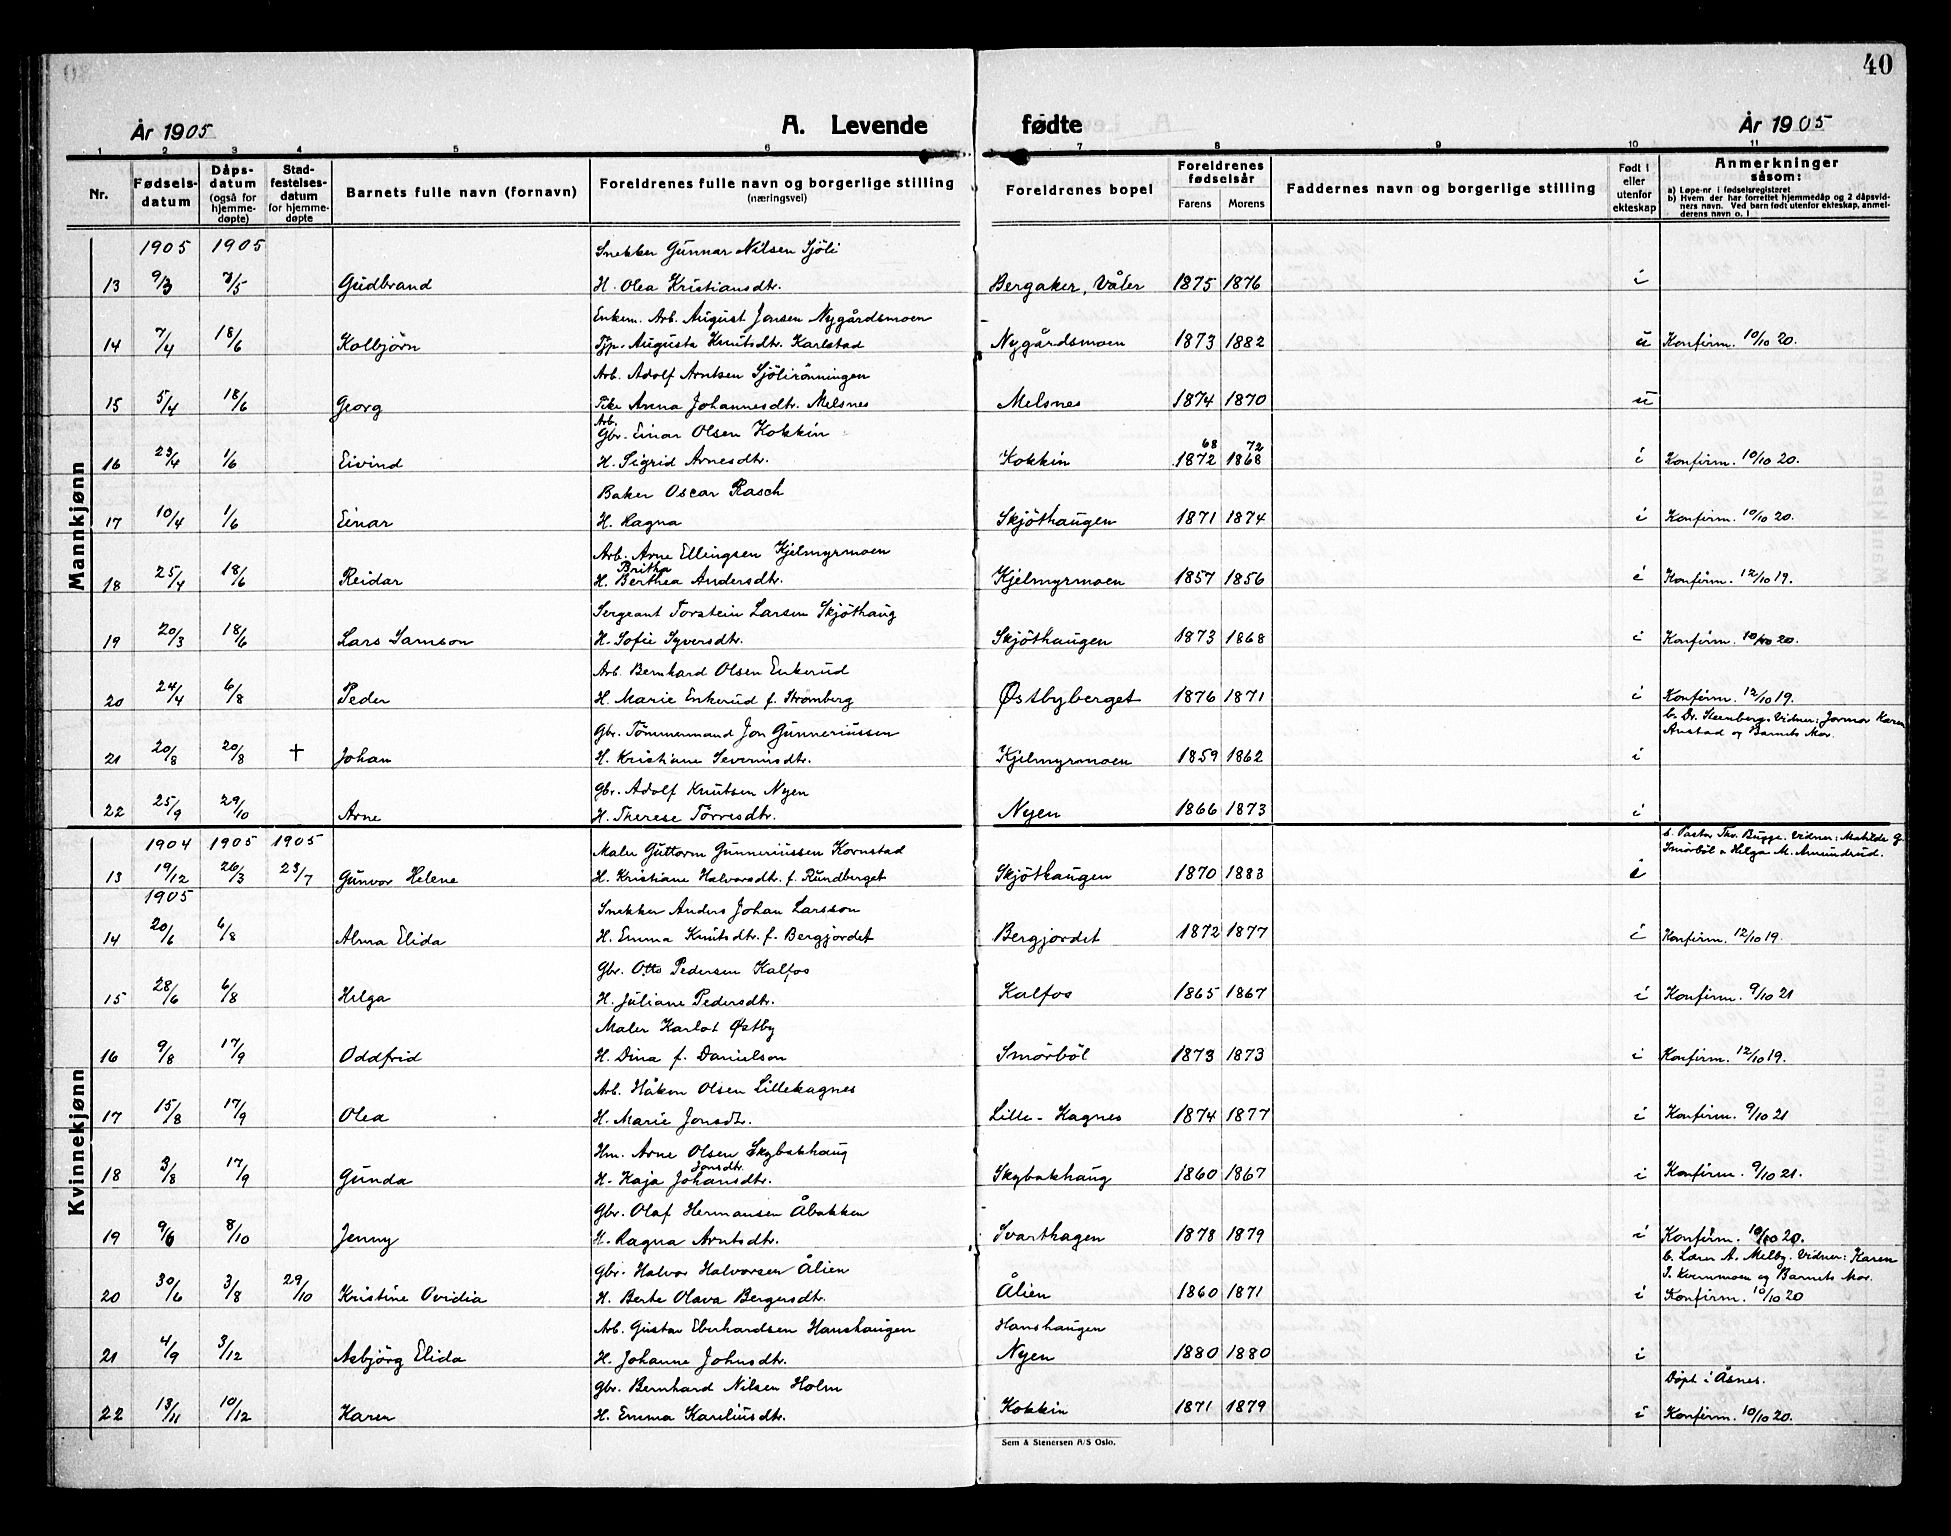 40
År 1905
A. Levende fødte
År 1905
1 2 3 4 5 6 7 8 9 10 11
Nr.
Fødsels-datum
Dåps-datum (også for hjemme-døpte)
Stad-festelses-datum for hjemme-døpte
Barnets fulle navn (fornavn)
Foreldrenes fulle navn og borgerlige stilling (næringsvei)
Foreldrenes bopel
Foreldrenes fødselsår
Farens Morens
Faddernes navn og borgerlige stilling
Født i eller utenfor ekteskap
Anmerkninger såsom:
a) Løpe-nr i fødselsregisteret
b) Hvem der har forrettet hjemmedåp og 2 dåpsvid-
ners navn. Ved barn født utenfor ekteskap, anmel-
derens navn o. l
Mannkjønn
1905 1905 Snekker Gunnar Nilsen Sjöli
13 9/3 7/5 Gudbrand H. Olea Kristiansdtr. Bergaker, Våler 1875 1876 i
Enkem. Arb. August Jonsen Nygårdsmoen
14 7/4 18/6 Kolbjørn Tjp. Augusta Knutsdtr. Karlstad Nygårdsmoen 1873 1882 u Konfirm. 10/10 20.
Arb. Adolf Arntsen Sjölirönningen
15 5/4 18/6 Georg Pike Anna Johannesdtr. Melsnes Melsnes 1874 1870 u
Arb.
Gbr. Einar Olsen Kokkin 68 72
16 23/4 1/6 Eivind H. Sigrid Arnesdtr. Kokkin 1872 1868 i Konfirm. 10/10 20.
Baker Oscar Rasch
17 10/4 1/6 Einar H. Ragna Skjöthaugen 1871 1874 i Konfirm. 10/10 20.
Arb. Arne Ellingsen Kjelmyrmoen
Britha
18 25/4 18/6 Reidar H. Berthea Andersdtr. Kjelmyrmoen 1857 1856 i Konfirm. 12/10 19.
Sergeant Torstein Larsen Skjöthaug
19 20/3 18/6 Lars Samson H. Sofie Syversdtr. Skjöthaugen 1873 1868 i Konfirm. 10/10 20.
Arb. Bernhard Olsen Enkerud
20 24/4 6/8 Peder H. Marie Enkerud f. Stromberg Østbyberget 1876 1871 i Konfirm. 12/10 19.
Gbr. Tömmermand Jon Gunneriussen b. Dr. Steenberg. Vidner: Karen
Anstad og Barnets Mor.
21 20/8 20/8 † Johan H. Kristiane Severinsdtr. Kjelmyrmoen 1859 1862 i
Gbr. Adolf Knutsen Nyen
22 25/9 29/10 Arne H. Therese Törresdtr. Nyen 1866 1873 i
Kvinnekjønn
1904 1905 1905 Maler Guttorm Gunneriussen Kornstad b. Pastor Thv. Bugge. Vidner: Mathilde G.
Smörböl & Helga M. Amundrud.
13 19/12 26/3 23/7 Gunvor Helene H. Kristiane Halvorsdtr. f. Rundberget Skjöthaugen 1870 1883 i
1905 Snekker Anders Johan Larsson
14 20/6 6/8 Alma Elida H. Emma Knutsdtr. f. Bergjordet Bergjordet 1872 1877 i Konfirm. 12/10 19.
Gbr. Otto Pedersen Kalfos
15 28/6 6/8 Helga H. Juliane Pedersdtr. Kalfos 1865 1867 i Konfirm. 9/10 21
Maler Karlot Østby
16 9/8 17/9 Oddfrid H. Dina f. Danielson Smörböl 1873 1873 i Konfirm. 12/10 19.
Arb. Håken Olsen Lillekagnes
17 15/8 17/9 Olea H. Marie Jonsdtr. Lille-Kagnes 1874 1877 i Konfirm. 9/10 21
Hm. Arne Olsen Skybakhaug
Jonsdtr.
18 3/8 17/9 Gunda H. Kaja Johansdtr. Skybakhaug 1860 1867 i Konfirm. 9/10 21.
Gbr. Olaf Hermansen Åbakken
19 9/6 8/10 Jenny H. Ragna Arntsdtr. Svarthagen 1878 1879 i Konfirm. 10/10 20.
Gbr. Halvor Halvorsen Ålien b. Lærer A. Melby. Vidner: Karen
J. Kvernmoen og Barnets Mor.
20 30/6 3/8 29/10 Kristine Ovidia H. Berte Olava Bergersdtr. Ålien 1860 1871 i Konfirm. 10/10 20
Arb. Gustav Eberhardsen Hanshaugen Hanshaugen
21 4/9 3/12 Asbjörg Elida H. Johanne Johnsdtr. Nyen 1880 1880 i
Gbr. Bernhard Nilsen Holm Döpt i Åsnes.
22 13/11 10/12 Karen H. Emma Kareliusdtr. Kokkin 1871 1879 i Konfirm. 10/10 20.
Sem & Stenersen A/S Oslo.